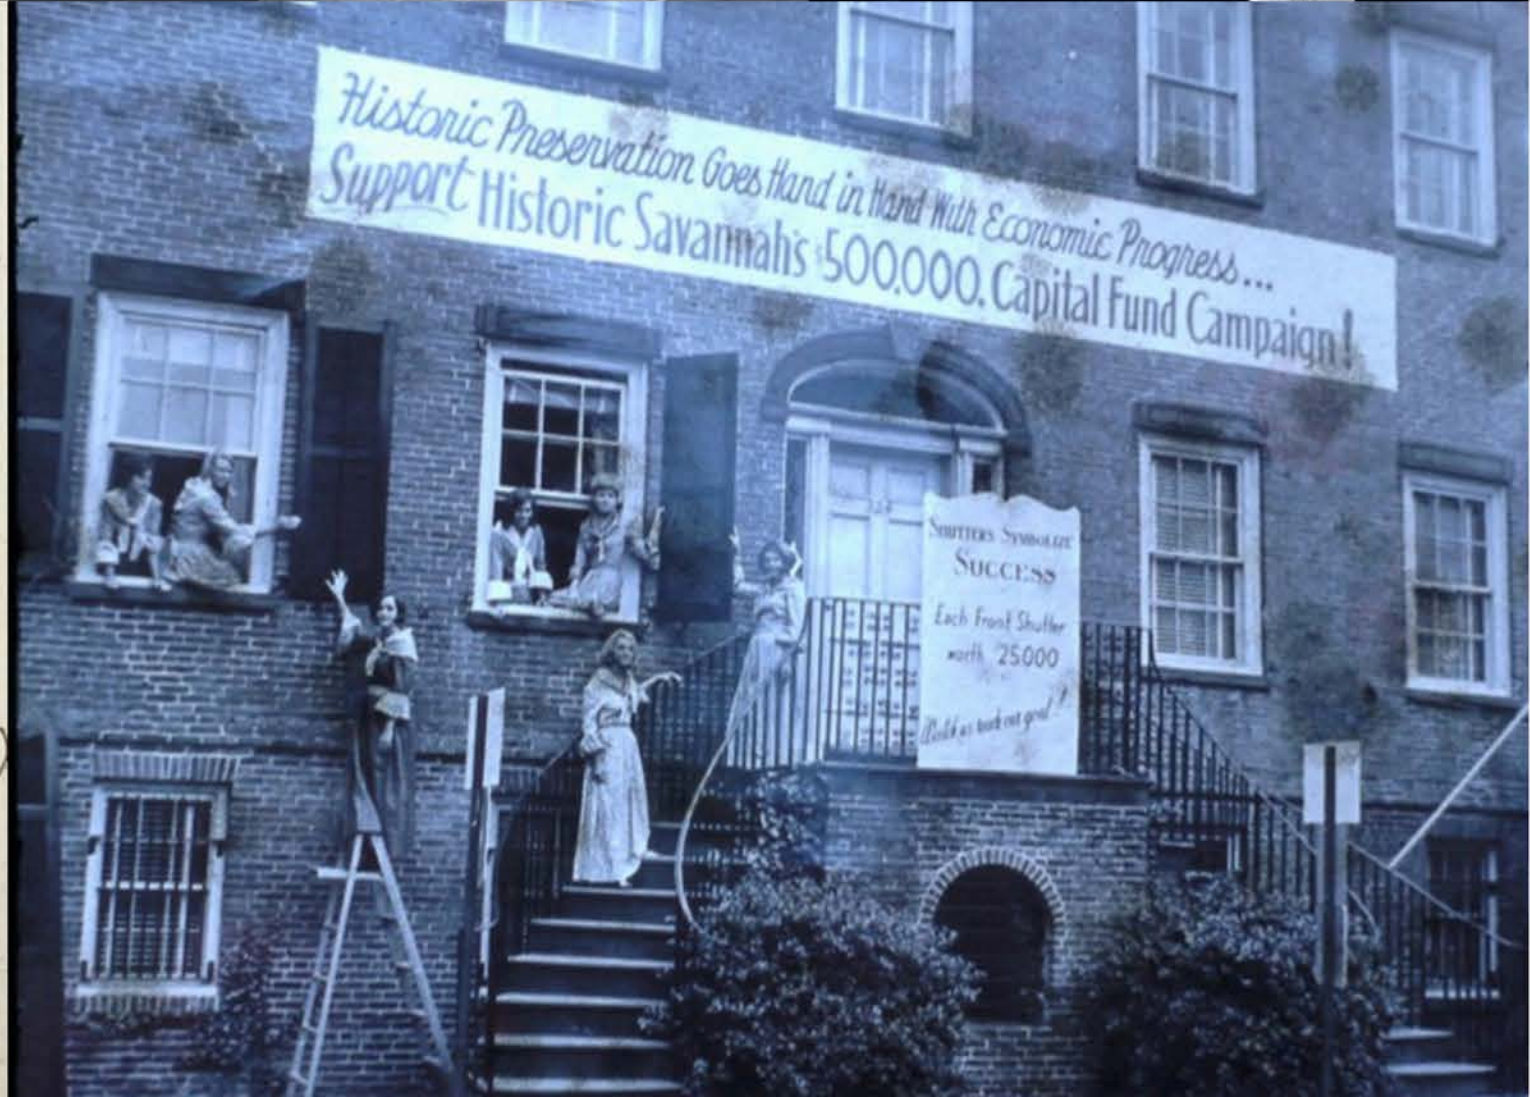 Historic Preservation Goes Hand in Hand With Economic Progress...
Support Historic Savannah's $500,000. Capital Fund Campaign!
SHUTTERS SYMBOLIZE
SUCCESS
Each Front Shutter
worth 25000
Watch us reach our goal!